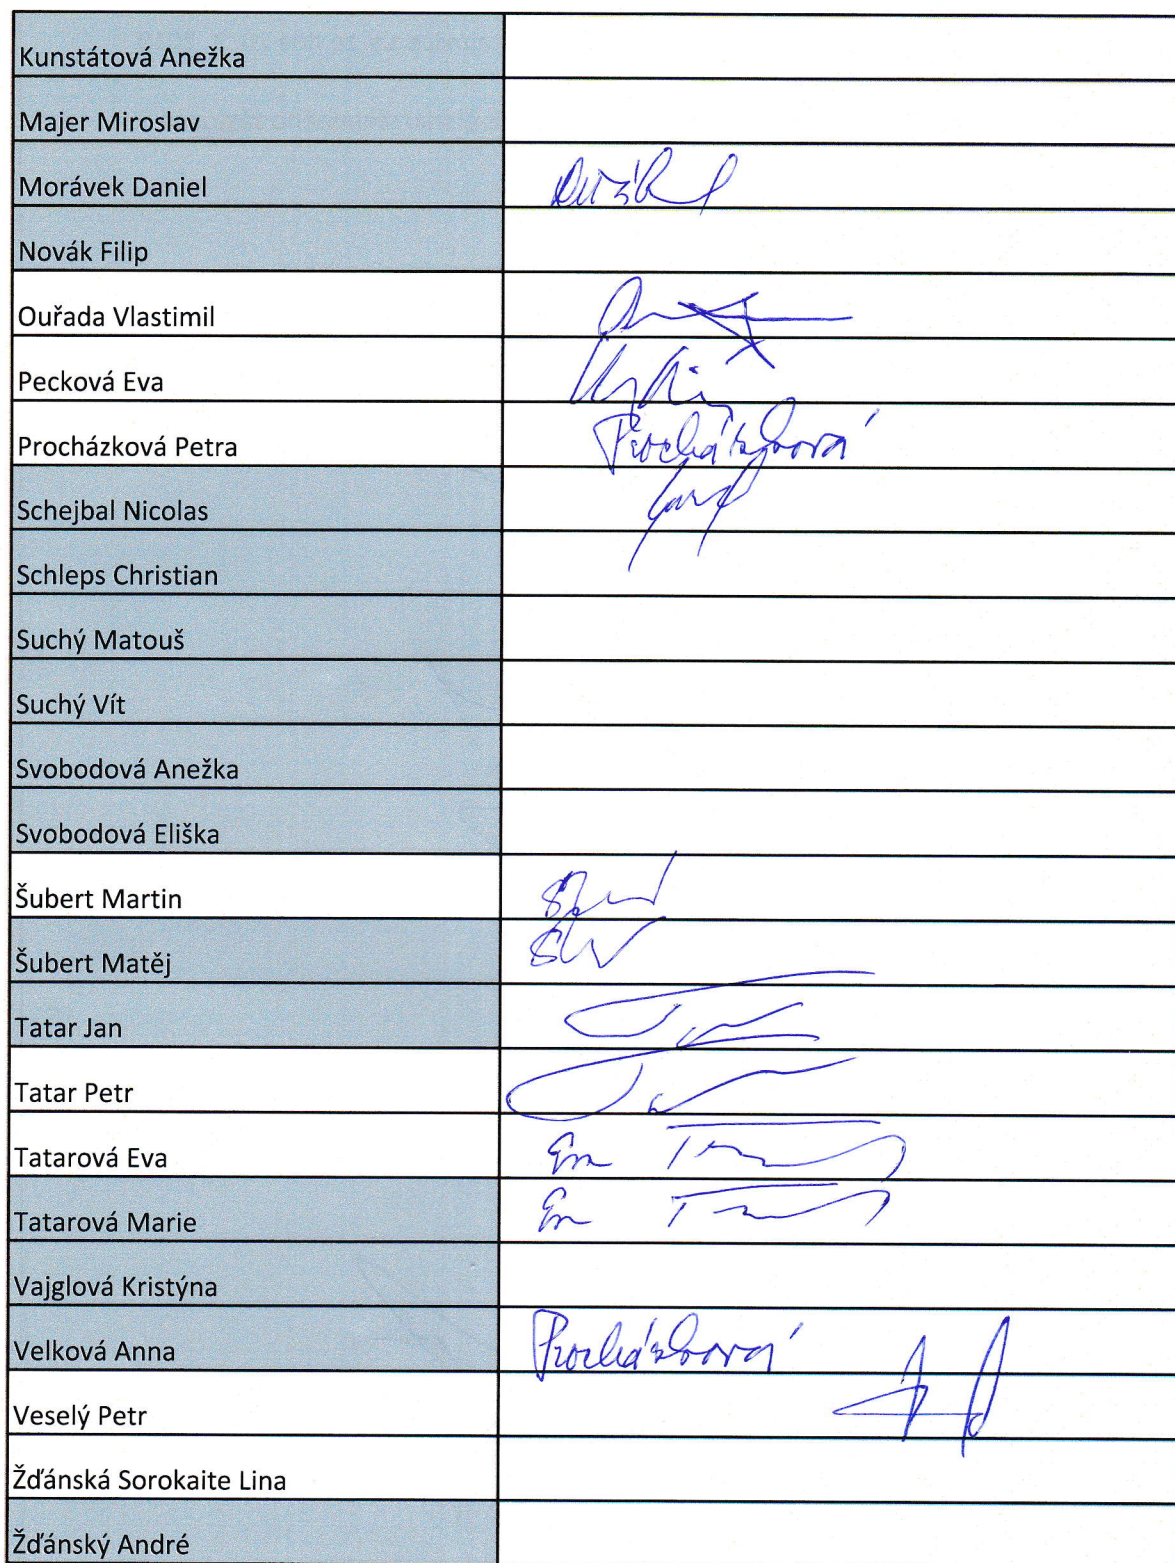 Kunstátová Anežka
Majer Miroslav
Morávek Daniel
Novák Filip
Ouřada Vlastimil
Pecková Eva
Procházková Petra Procházková
Schejbal Nicolas
Schleps Christian
Suchý Matouš
Suchý Vít
Svobodová Anežka
Svobodová Eliška
Šubert Martin
Šubert Matěj
Tatar Jan
Tatar Petr
Tatarová Eva
Tatarová Marie
Vajglová Kristýna
Velková Anna Procházková
Veselý Petr
Žďánská Sorokaite Lina
Žďánský André